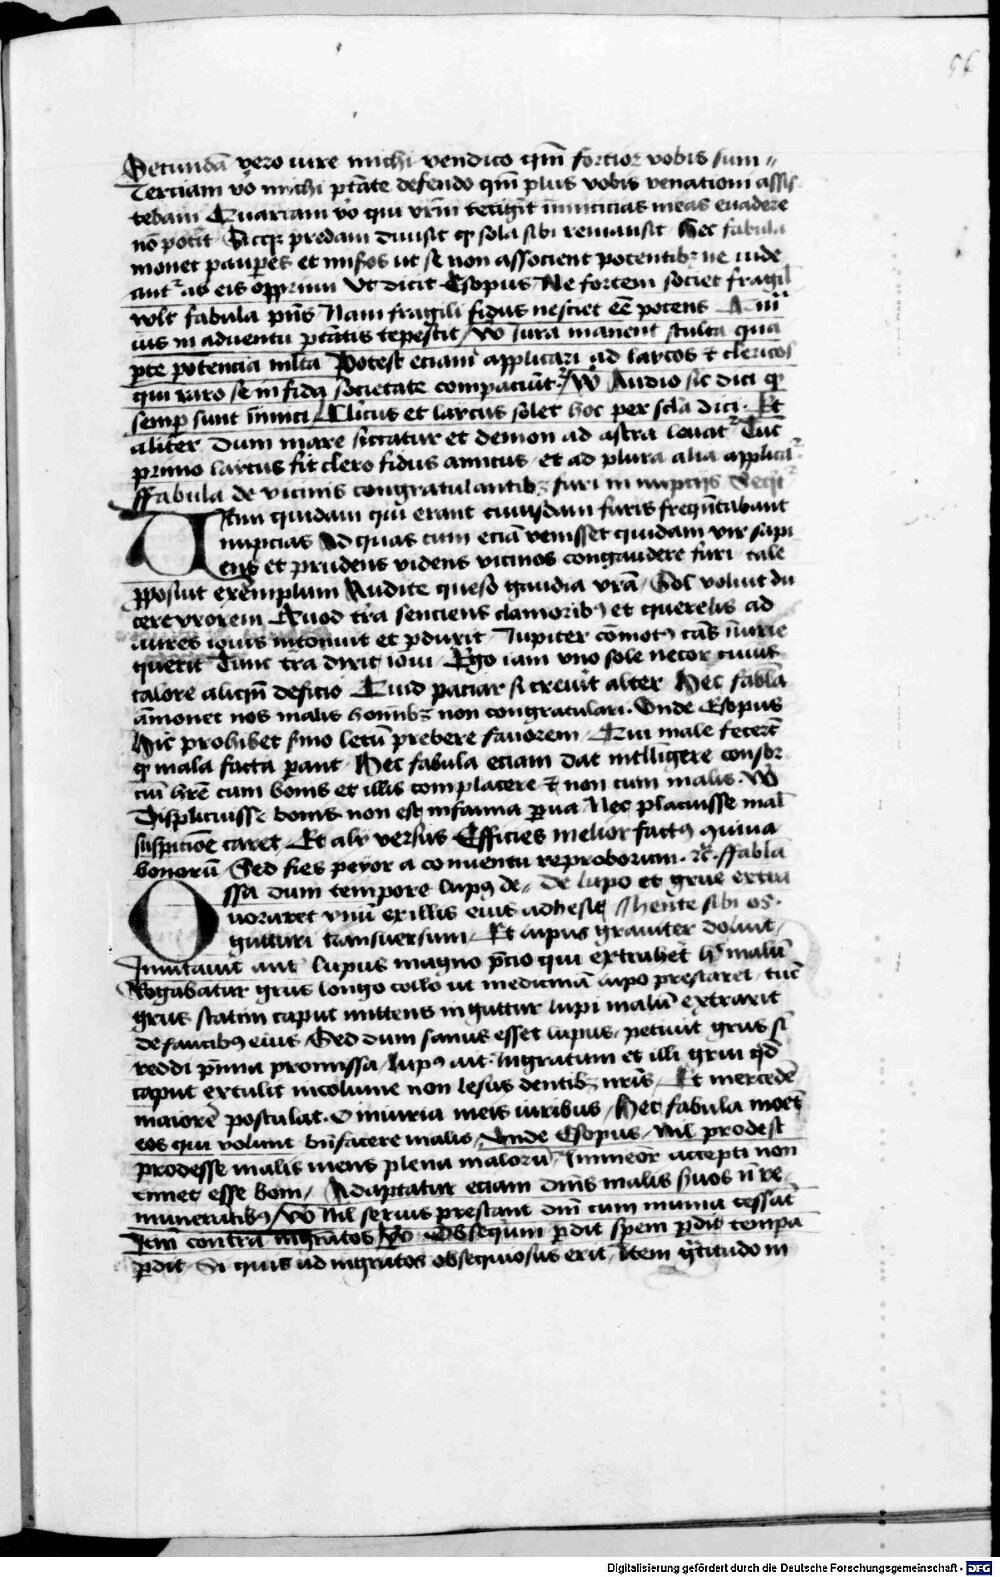 56
Secundā vero iure michi vendico qm̄ fortior vobis sum
Terciam vo michi ptāte defendo qm̄ plus vobis venationi assis
tebam Quartam vo qui vrm̄ tetigit inimicicias meas euadere
nō potit Sicq predam diuisit q sola sibi remansit Hec fabula
monet paupes et infios ut se non associent potentibꝫ ne inde
ant ab eis opprimi Vt dicit Esopus Ne fortem societ fragil
volt fabula pn̄s Nam fragili fidus nesciet eē potens
ius in aduentu ptātis tepescit vo Iura manent stulta qua
pte potencia mlta Potest eciam applicari ad laycos et clericos
qui raro se in fida societate compaciūt Audio sic dici q
semp sunt inimici Clicus et laycus solet hoc per scla dici Et
aliter dum mare siccatur et demon ad astra leuat Tūc
primo laycus fit clero fidus amicus et ad plura alia applicat
ffabula de vicinis congratulantibꝫ furi in nupcijs Seqit
quidam qui erant cuiusdam furis frequētabant
nupcias Ad quas cum eciā venisset quidam vir sapi
ens et prudens videns vicinos congaudere furi tale
pposuit exemplum Audite queso gaudia vrā Sol voluit du
cere vxorem Quod tra senciens clamoribꝰ et querelis ad
aures iouis intonuit et pduxit Iupiter cōmotꝰ cās iniurie
querit Tunc tra dixit ioui Ego iam vno sole necor cuius
calore aliqn̄ deficio Quid paciar si creuit alter Hec fabla
āmonet nos malis hominibꝫ non congratulari Onde Esopus
Hic prohibet smo letū prebere fauorem Qui male fecert
q mala facta parant Hec fabula eciam dat intlligere consor
ciū hr̄e cum bonis et illis complacere et non cum malis Vo
Displicuisse bonis non est infamia pua Nec placuisse mal
suspicione caret Et alij versus Efficies melior factꝰ quina
bonorū Sed fies peyor a conuentu reproborum ffabla
Ossa dum tempore lupꝰ de De lupo et grue extra
uoraret vnū ex illis eius adhesit hente sibi os
gutturi transuersum Et lupus grauiter doluit
Inuitauit aut lupus magno pcio qui extrahet hꝰ malū
Rogabatur grus longo collo ut medicinā lupo prestaret tūc
grus statim caput mittens in guttur lupi malū extraxit
de faucibꝰ eius Sed dum sanus esset lupus petiuit grus si
reddi pmia promissa lupꝰ ait Ingratam et illi grui qd
caput extulit incolume non lesus dentibꝫ nris Et mercedē
maiorē postulat O iniuria meis iuribus Hec fabula moet
eos qui volunt bn̄facere malis Unde Esopus Nil prodest
prodesse malis mens plena malorū Inmeor accepti non
timet esse boni Adaptatur eciam dn̄is malis suos nre
muneratibꝰ vo Nil seruis prestant dn̄i cum munia cessāt
Item contra ingratos vo Obsequim pdit spem pdit tempa
pdit Si quis ad ingratos obsequiosus erit Item gtitudo in
Digitalisierung gefördert durch die Deutsche Forschungsgemeinschaft - DFG